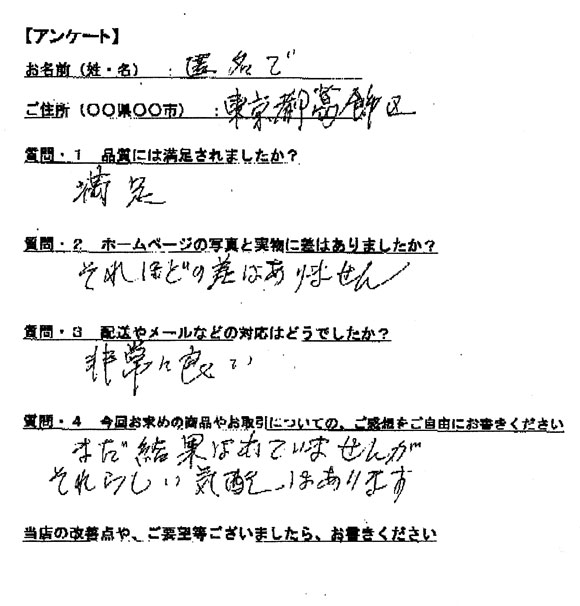 【アンケート】
お名前（姓・名）　：匿名で
ご住所（〇〇県〇〇市）　：東京都葛飾区
質問・１　品質には満足されましたか？
満足
質問・２　ホームページの写真と実物に差はありましたか？
それほどの差はありません
質問・３　配送やメールなどの対応はどうでしたか？
非常に良い
質問・４　今回お求めの商品やお取引についての、ご感想をご自由にお書きください
まだ結果はでていませんが
それらしい気配はあります
当店の改善点や、ご要望等ございましたら、お書きください